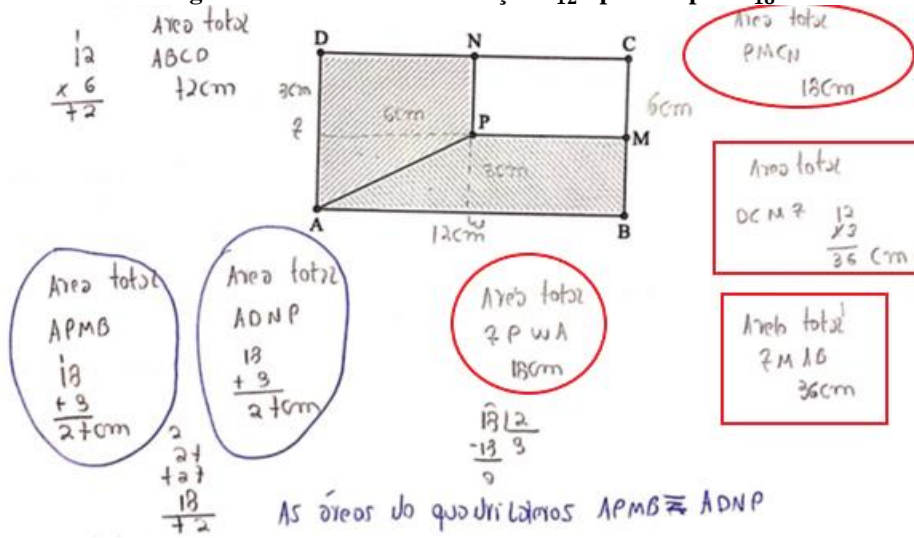 12
x 6
72
Area total
ABCD
72cm
D
N
C
3cm
6cm
6cm
Z
P
M
3cm
A
w
B
12cm
Area total
PMCN
18cm
Area total
DCMZ
12
x3
36 cm
Area total
APMB
18
+ 9
27cm
Area total
ADNP
18
+ 9
27cm
Area total
ZPWA
18cm
Area total
ZMAB
36cm
18 2
-18 9
0
2
27
+27
18
72
As áreas do quadriláteros APMB ≅ ADNP